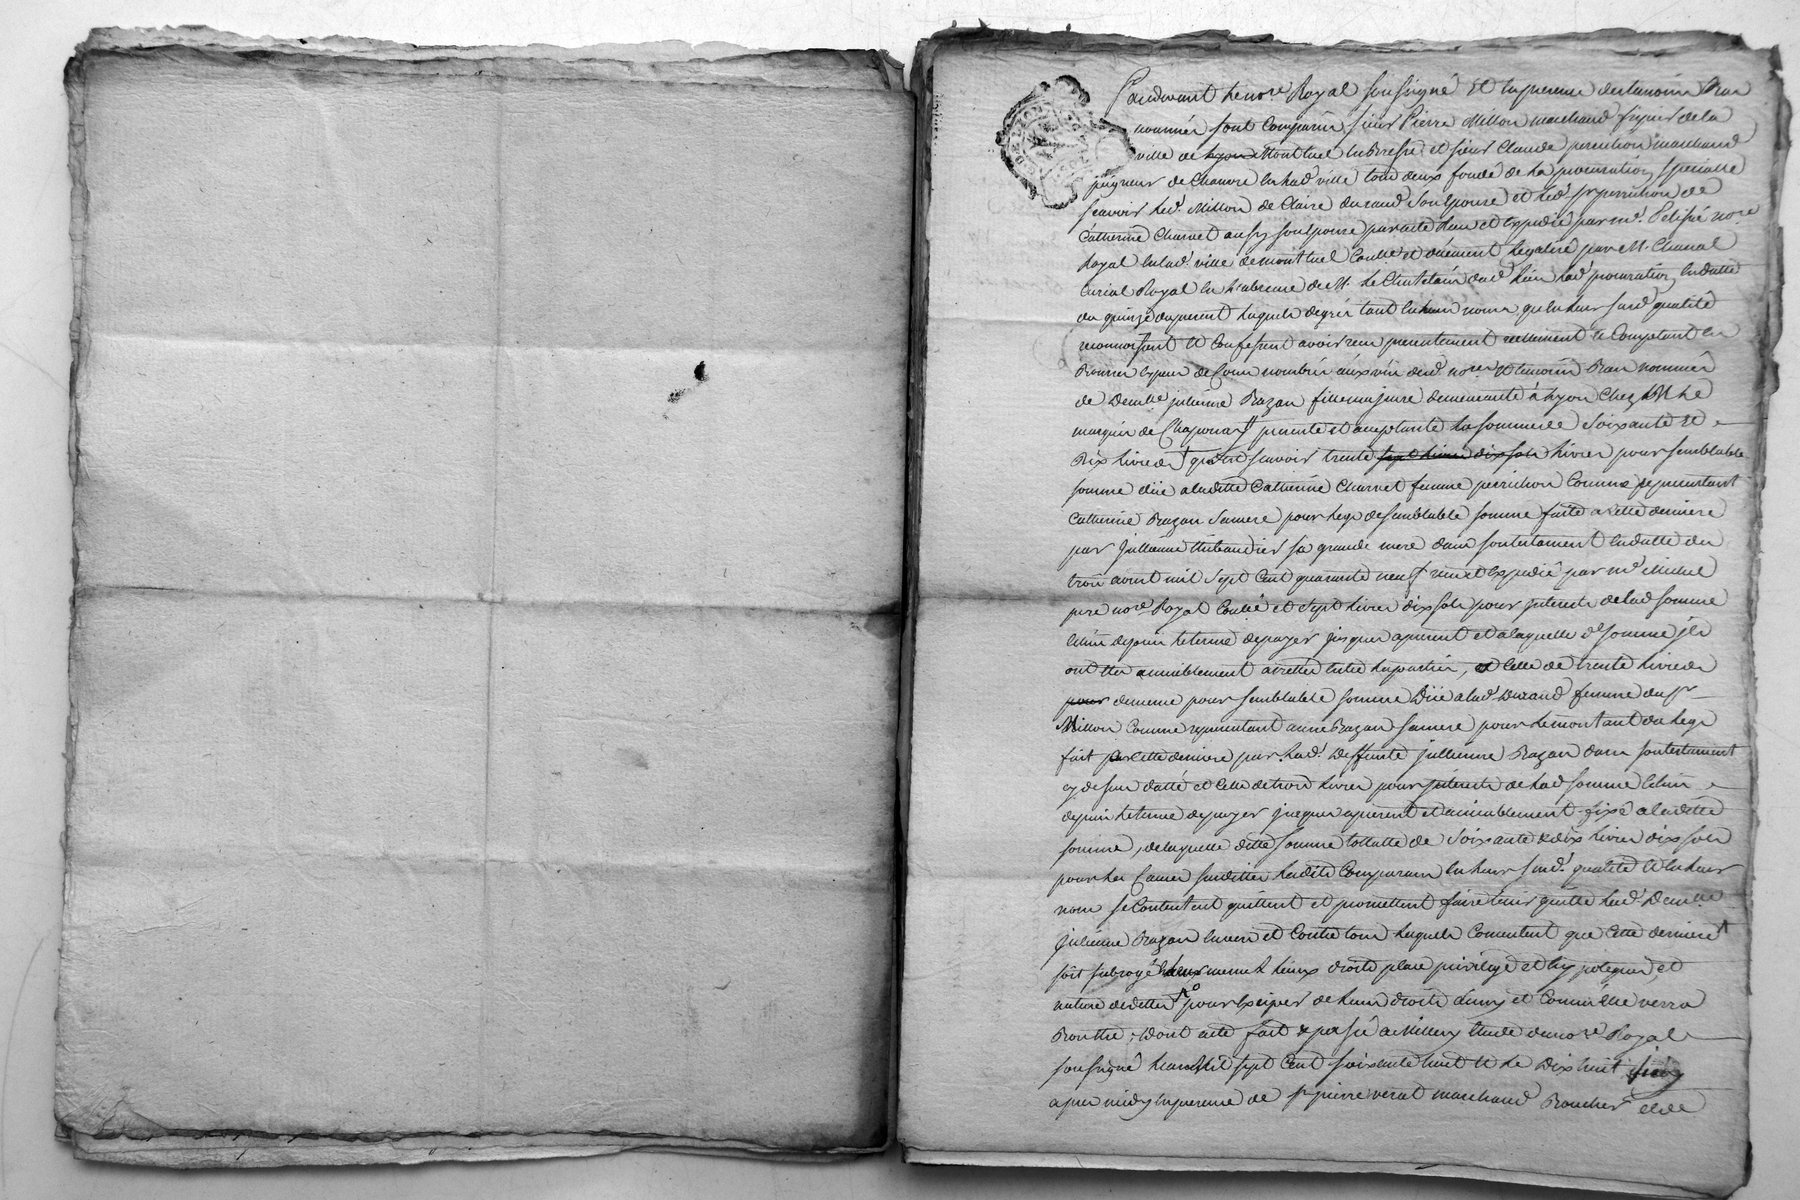 Pardevant le no.re Royal soussigné Et en presence des temoins Bas
nommés sont Comparus sieur Pierre Millon marchand fripier de la
ville de Lyon Montluel en Bresse et sieur Claude perrichon marchand
peigneur de Chanvre en lad. ville tous deux fondé de la procuration speciale
scavoir led. Millon de Claire durand son Epouse et led. sr perrichon de
Catherine Charvet aussy son Epouse par acte Reçu et Expedié par me. no.re
Royal en lad. ville de montluel Controllé et düement Legalisé par M. Chanal
Curial Royal en l'absence de M. le Chatelain dud. lieu lad. procuration en datte
du quinze du present lesquels de gré tant en leurs noms qu'en leurs susd. qualité
reconnoissent Et Confessent avoir reçu presentement reellement Et Comptant en
Bourses Especes de Cours nombrés aux vüe dud. no.re Et temoins Bas nommés
de Demlle julienne Razan fille majeure demeurante à Lyon Chez M. le
marquis de Chaponay presente et acceptante la somme de Soixante Et
Dix Livres scavoir trente sept livres dix sols livres pour semblable
somme düe a laditte Catherine Charvet femme perrichon Comme representant
Catherine Razan sa mere pour legs de semblable somme faite a cette derniere
par Jullienne thibaudier sa grande mere dans son testament en datte du
trois aoust mil Sept Cent quarante neuf reçu et Expedié par me Michel
pere no.re Royal Controllé et Sept livres dix sols pour jnterets de lad. somme
depuis le terme de payer jusques apresent et a laquelle d. somme jls
ont Eté amiablement arrettés entre les parties, et Celle de trente livres
pour de meme pour semblable somme Düe a lad. Durand femme du sr
Millon Comme representant anne Razan sa mere pour le montant du legs
fait par cette derniere par lad. Deffunte jullienne Razan dans son testament
cy dessus datté et Celle de trois livres pour jnterets de lad. somme
depuis le terme de payer jusques apresent et amiablement fixé a laditte
somme, de laquelle ditte somme tottalle de Soixante et dix livres dix sols
pour les Causes susdittes lesdits Comparans en leurs susd. qualité Et en leurs
noms se Contentent quittent et promettent faire tenir quitte lad. Demlle
julienne Razan Envers et Contre tous lesquels Consentent que Cette derniere
soit subrogé leurs memes lieux droits place privilege et hypoteques, et
nature de dettes pour Exciper de leurs droits d'ung et Comm'elle verra
Bon etre; Dont acte fait & passé a Millery Etude du no.re Royal
soussigné l'an Mil sept Cent soixante huit Et le Dix huit
apres midy En presence de sr pierre verat marchand Boucher et de